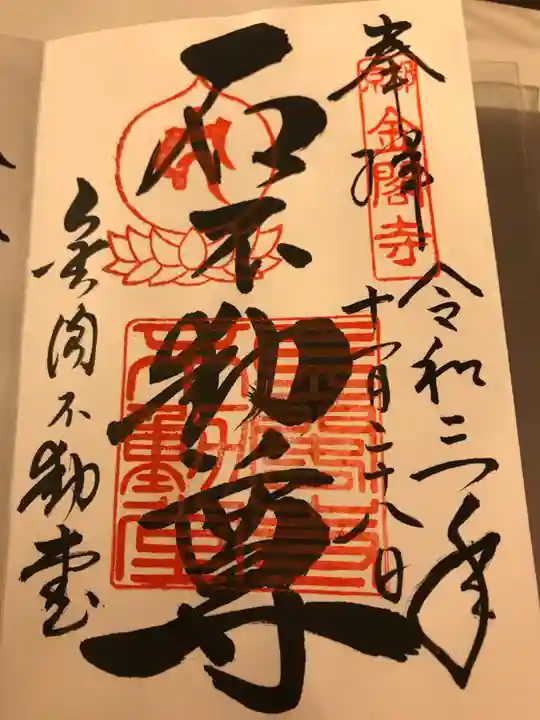 奉拝
金閣寺
令和三年
十一月二十八日
石不動尊
金閣不動堂